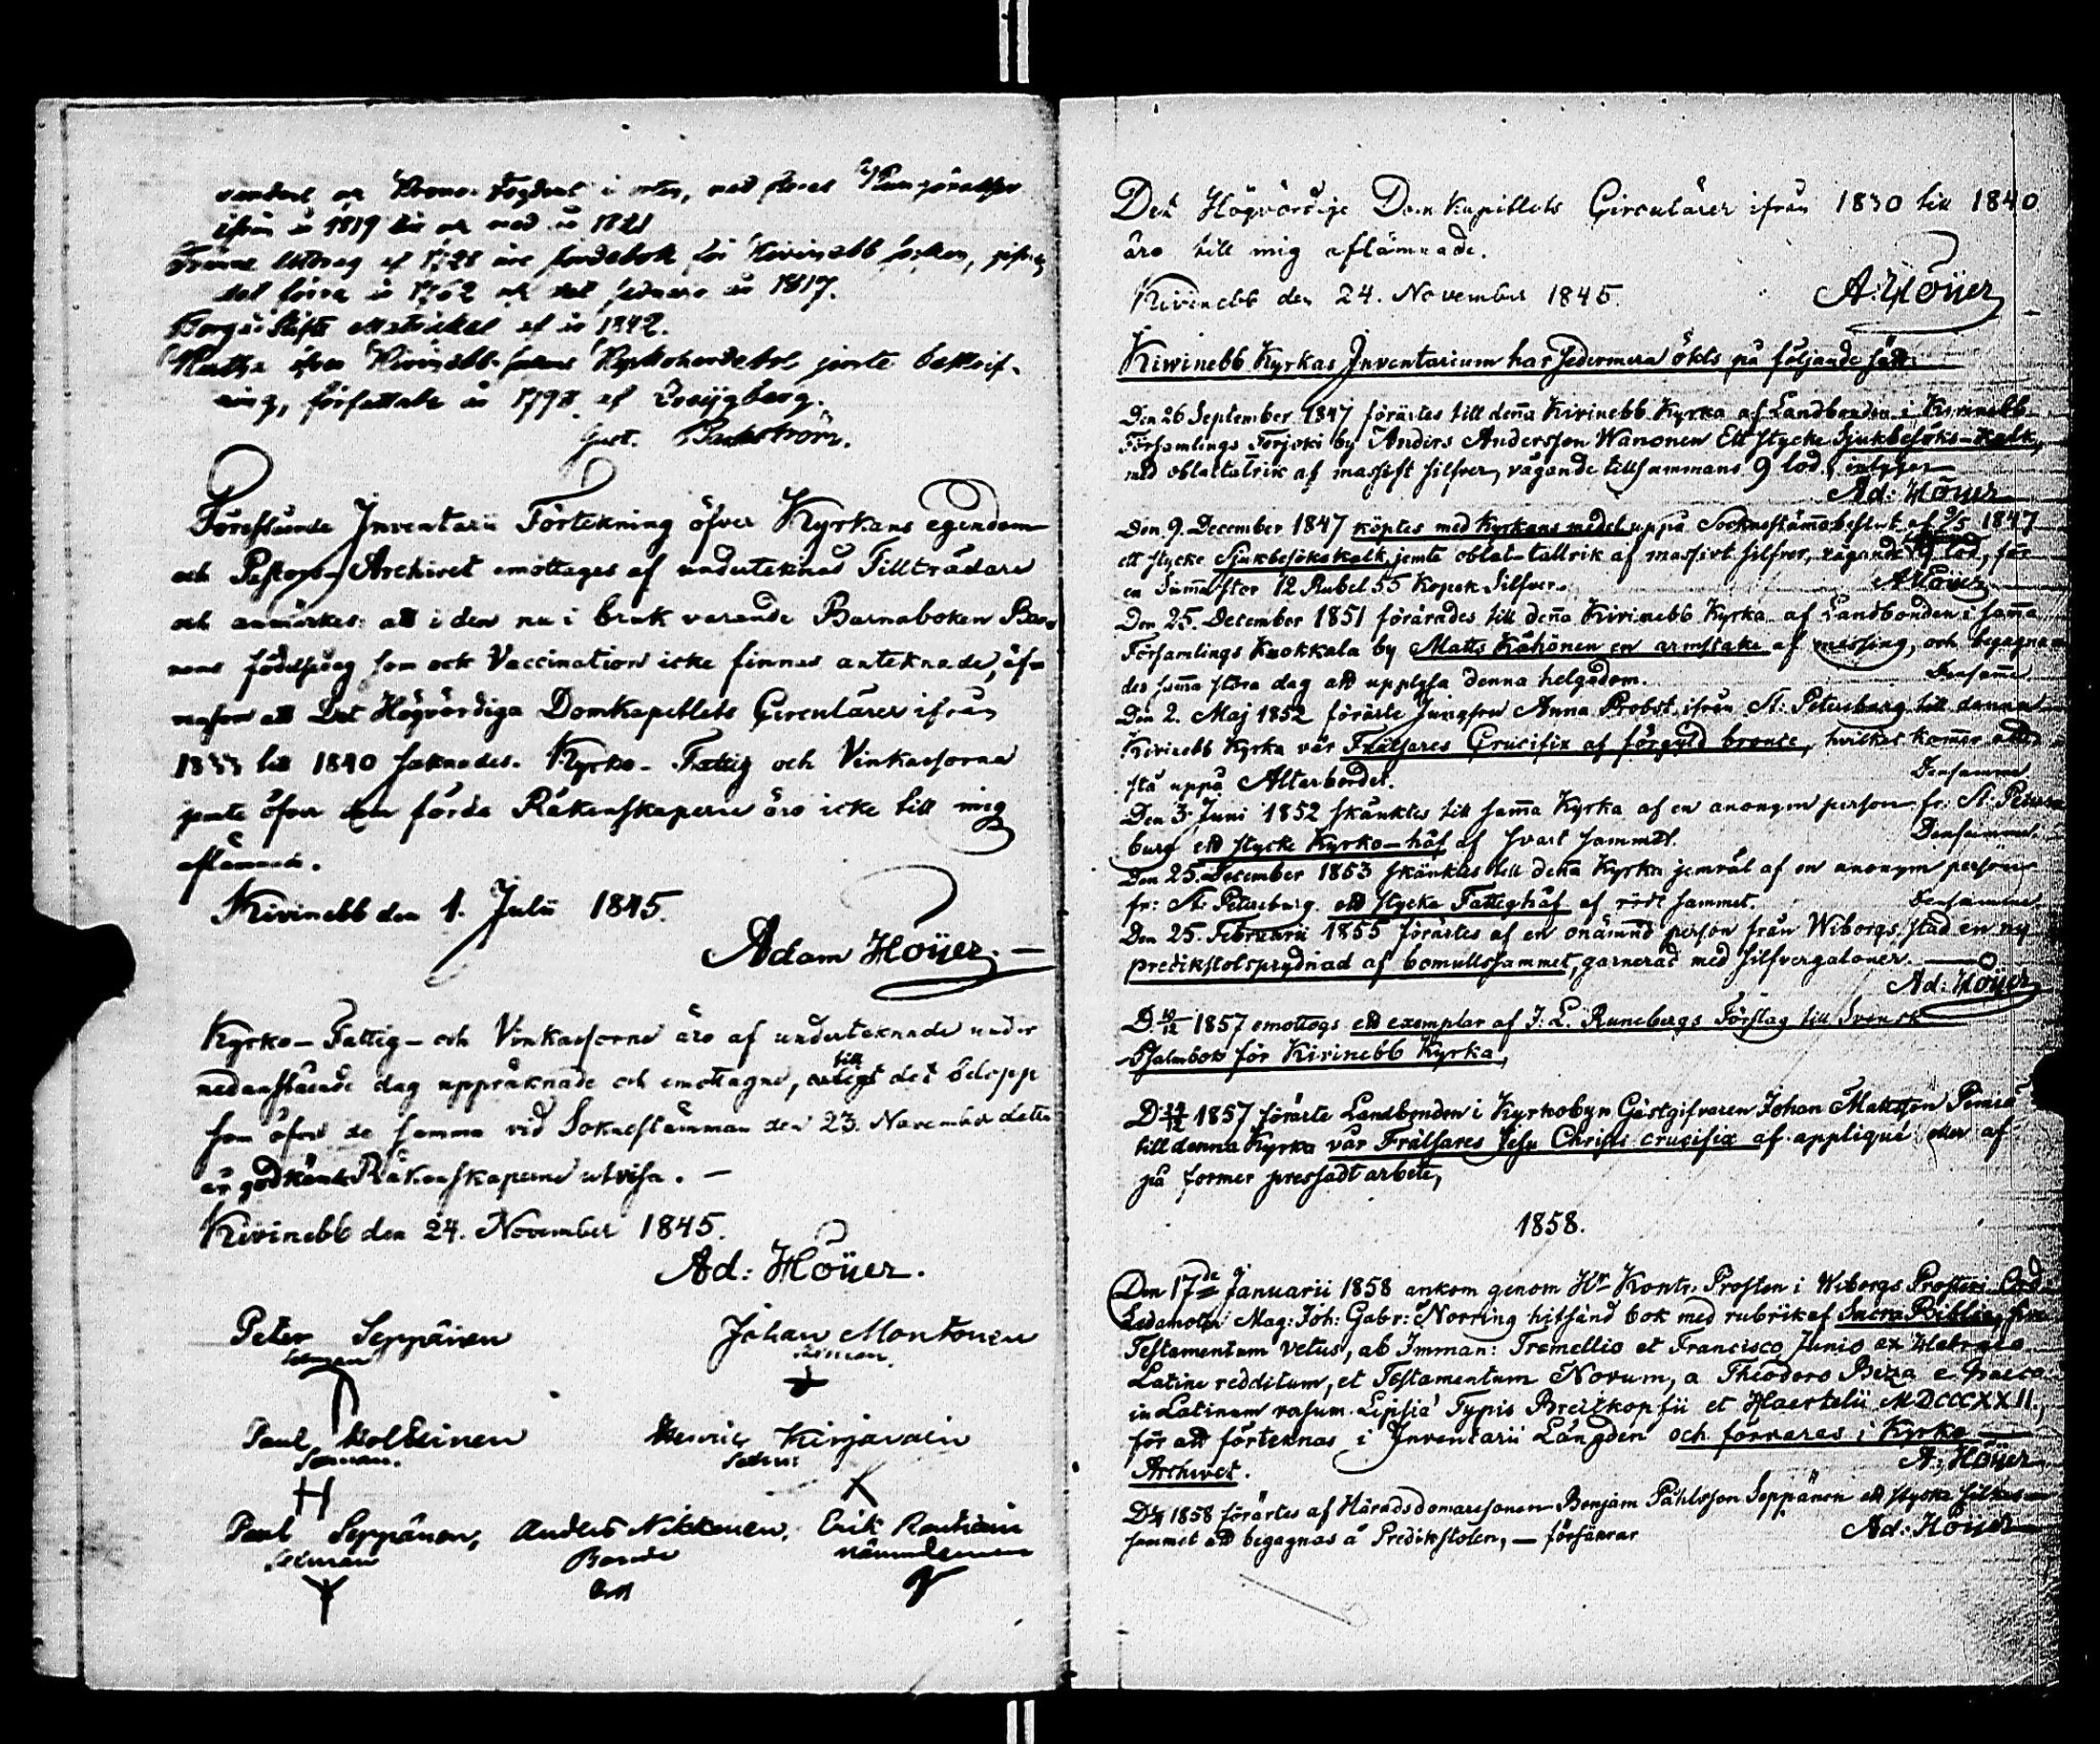 ifrån år 1819 till och med år 1821
Trenne Utdrag af 1728 års Jordebok för Kivinebb socken,
det förra år 1762 och det sednare år 1817.
Borgå Stifts Matrickel af år 1842.
öfver Kivinebb Kyrkoherdebol jemte beskrif-
ning, författade år 179 af
Gust. Backström.
Förestående Inventarii Förtekning öfver Kyrkans egendom
och Pastors-Archivet emottages af undertecknad Tillträdare
och anmärkes: att i den nu i bruk varande Barnaboken Bar-
nens födelsedag som ock Vaccination icke finnas anteknade, äf-
vensom att Det Högvördiga Domkapitlets Circulärer ifrån
1833 till 1840 saknades. Kyrko- Fattig och Vinkassorna
jemte öfver dem förda Räkenskaperne äro icke till mig
aflämnade.
Kivinebb den 1. Julii 1845.
Adam Höijer. —
Kyrko- Fattig- och Vinkassorne äro af undertecknade under
nedanstående dag uppräknade och emottagne, till det belopp
som öfver de samma vid Soknestämman den 23. November detta
år godkände Räkenskaperne utvisa. —
Kivinebb den 24. November 1845.
Ad: Höijer.
Peter Seppänen Johan Montonen
Paul Henric Kirjavain
Paul Seppänen, Anders Nikkenen, Erik Rautiain
Bonde
Det Högvördige Domkapitlets Circulärer ifrån 1830 till 1840
äro till mig aflämnade.
Kivinebb den 24. November 1845. A: Höijer
Kiwinebb Kyrkas Inventarium har sedermera ökts på följande sätt:
Den 26 September 1847 förärtes till denna Kivinebb Kyrka af Landbonden i Kivinebb
Församlings Terijoki by Anders Andersson Wanonen Ett stycke Sjukbesöks-Kalk,
med oblattalrik af massift silfver, vägande tillsammans 9 lod, intygar
Ad: Höijer
Den 9. December 1847 köptes med Kyrkans medel uppå Sockenstämmobeslut af 9/5 1847
ett stycke Sjukbesökskalk jemte oblat-tallrik af massivt silfver, vägande lod, för
en Summa stor 12 Rubel 55 Kopek Silfver. A: Höijer
Den 25. December 1851 förärades till denna Kivinebb Kyrka af Landbonden i samma
Församlings Kuokkala by Matts Kähönen en armstake af messing, och begagna-
des samma stora dag att upplysa denna helgedom. Densamme
Den 2. Maj 1852 förärte Jungfru Anna Probst ifrån St. Petersburg till denna
Kivinebb Kyrka vår Frälsares Crucifix af förgyld bronce, hvilket kommer att
stå uppå Alterbordet. Densamme
Den 3. Juni 1852 skänktes till samma Kyrka af en anonym person fr: St. Peters-
burg ett stycke Kyrko-håf af svart sammet. Densamme.
Den 25. December 1853 skänktes till denna Kyrka jemväl af en anonym person
fr: St. Petersburg ett stycke Fattighåf af rödt sammet. Densamme
Den 25. Februarii 1855 förärtes af en onämnd person från Wiborgs stad en ny
predikstolsprydnad af bomullssammet, garnerad med silfvergaloner. —
Ad: Höijer
D. 10/12 1857 emottogs ett exemplar af J. L. Runebergs Förslag till Svensk
Psalmbok för Kivinebb Kyrka,
D. 1857 förärte Landbonden i Kyrkobyn Gästgifvaren Johan Mattsson
till denna Kyrka vår Frälsares Jesu Christi crucifix af appliqué eller af
på former pressadt arbete,
1858.
Den 17de Januarii 1858 ankom genom Hr Kontr. Prosten i Wiborgs Prosteri
Ledamoten Mag: Joh: Gabr: Norring hitsänd bok med rubrik af Sacra Biblia, sive
Testamentum Vetus, ab Imman: Tremellio et Francisco Junio ex Hebraeo
Latine redditum, et Testamentum Novum, a Theodoro Beza e Graeca
in Latinum versum. Lipsiæ Typis Breitkopfii et Haertelii MDCCCXXII.,
för att förteknas i Inventarii Längden och förvaras i Kyrko-
Archivet. A: Höijer
1858 förärtes af Häradsdomaresonen Benjam Påhlsson Seppänen ett stycke
sammet att begagnas å Predikstolen, — försäkrar Ad: Höijer